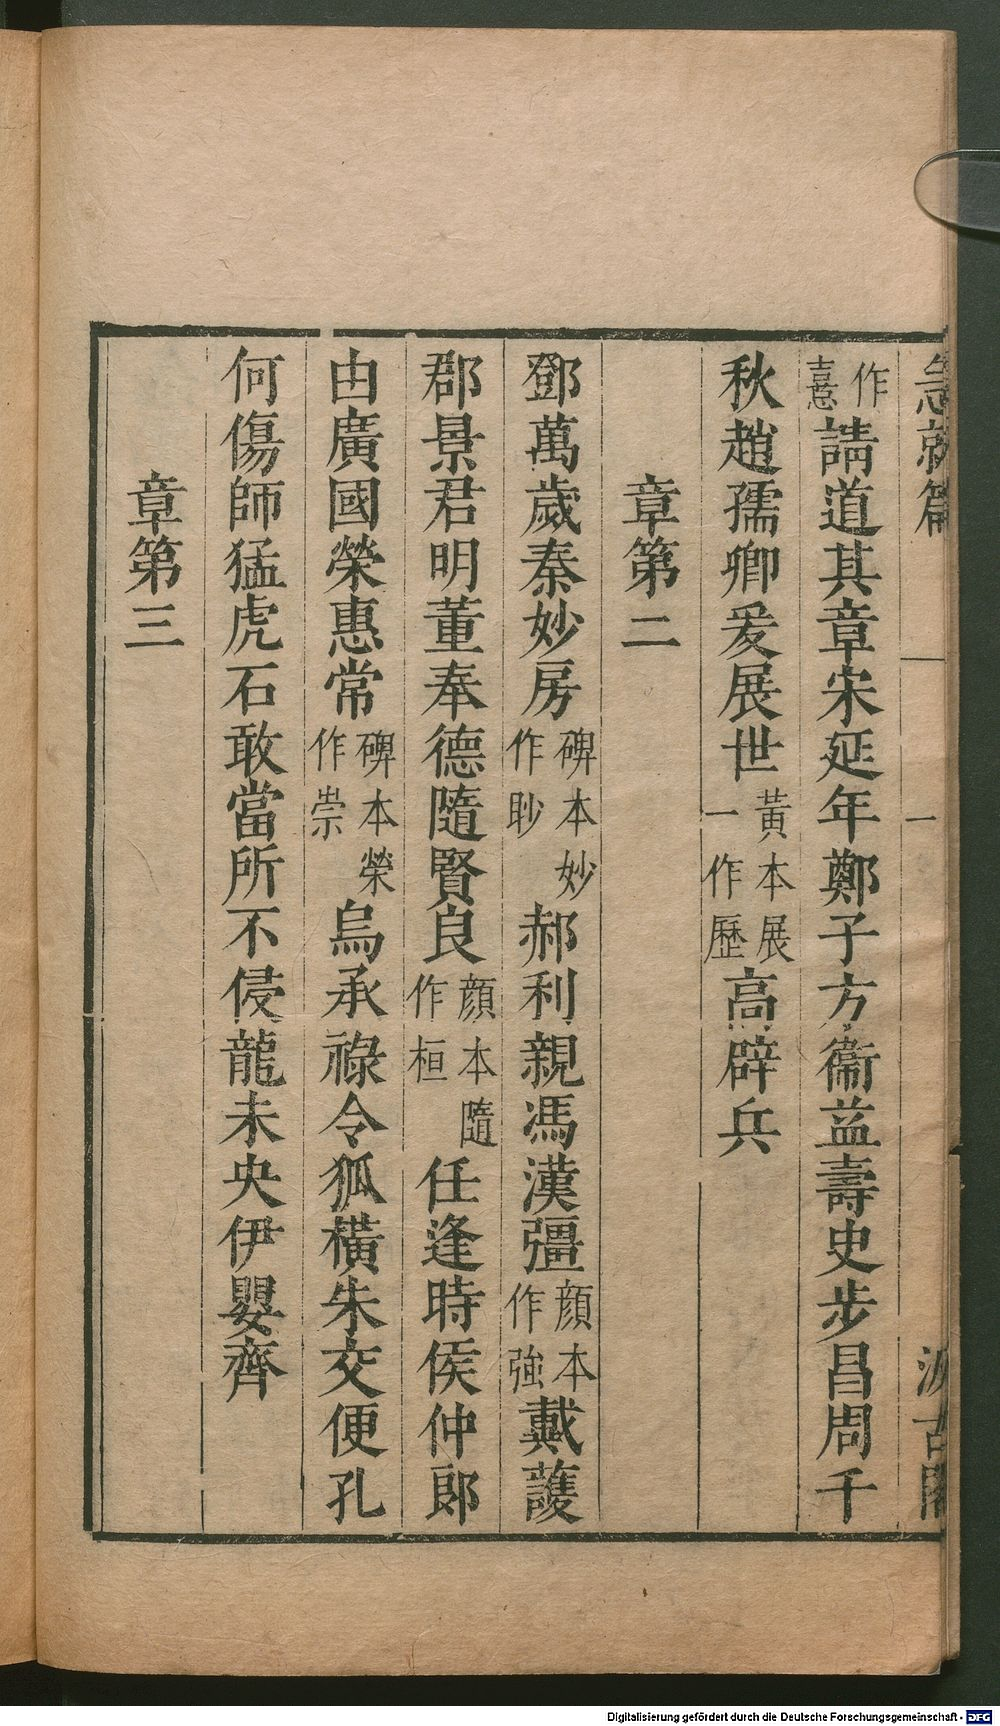 急就篇 一 汲古閣
作憙請道其章宋延年鄭子方衞益壽史步昌周千
秋趙孺卿爰展世黃本展一作歷高辟兵
章第二
鄧萬歲秦妙房碑本妙作眇郝利親馮漢彊顏本作強戴護
郡景君明董奉德隨賢良顏本隨作桓任逢時侯仲郎
由廣國榮惠常碑本榮作崇烏承祿令狐橫朱交便孔
何傷師猛虎石敢當所不侵龍未央伊嬰齊
章第三
Digitalisierung gefördert durch die Deutsche Forschungsgemeinschaft - DFG